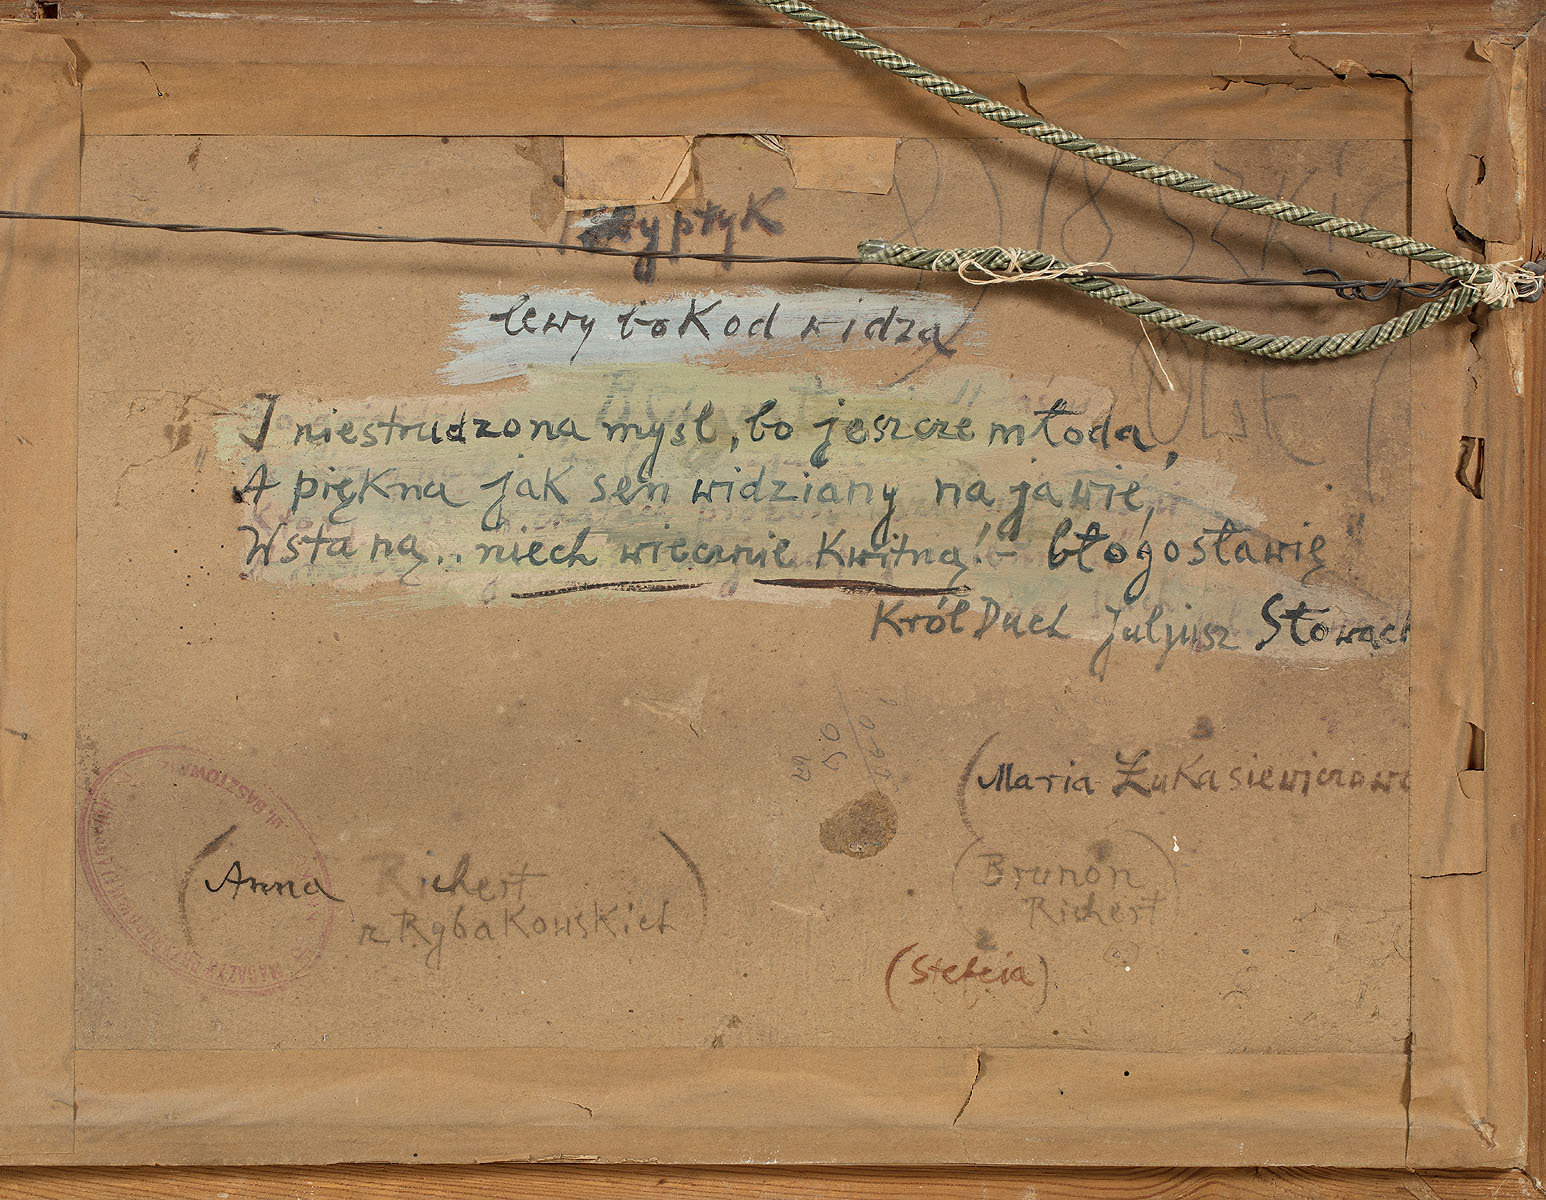 Tryptyk
18 SZKIC
lewy bok od widza
I niestrudzona myśl, bo jeszcze młoda,
A piękna jak sen widziany na jawie,
Wstaną.. niech wiecznie kwitną! - błogosławię
Król Duch Juljusz Słowack
(Maria Łukasiewiczowa
(Anna Richert
z Rybakowskich)
(Brunon
Richert)
(Stefcia)